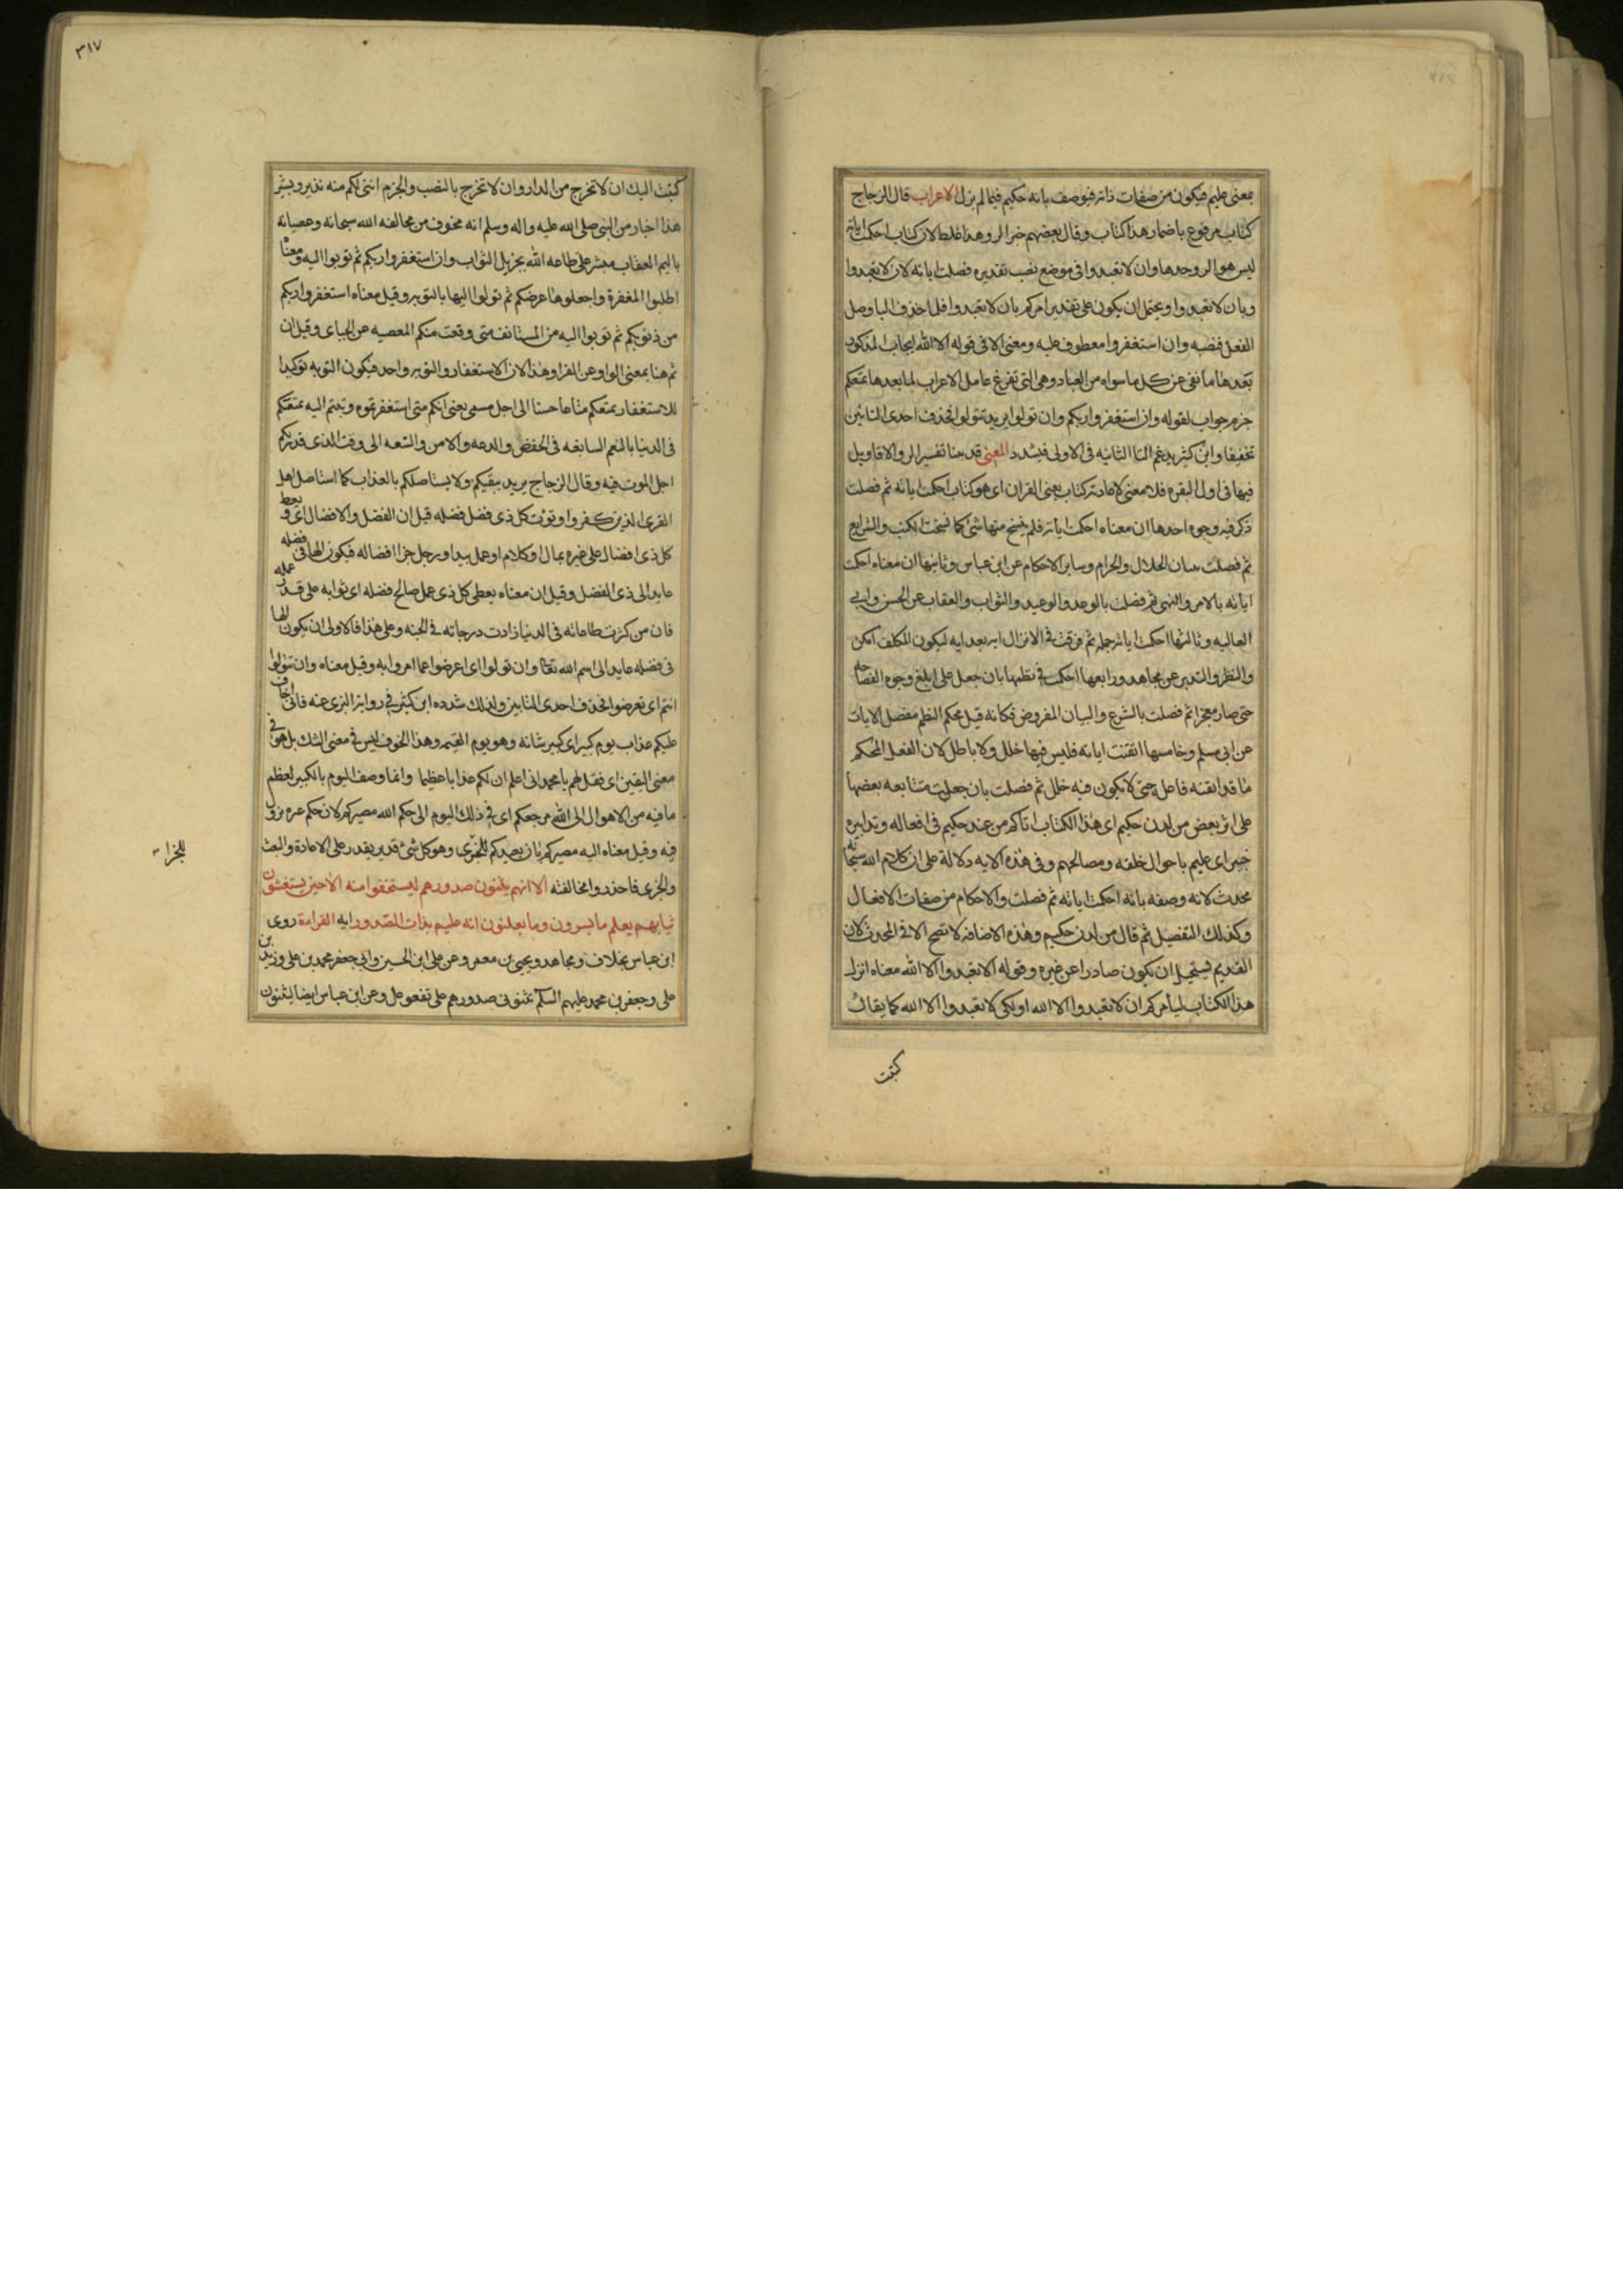 بمعنى عليم فيكون من صفات ذاته فيوصف بانه حكيم فيما لم يزل الاعراب قال الزجاج
كتاب مرفوع باضمار هذا كتاب وقال بعضهم خبر الر وهذا غلط لان كتاب احكمت اياته
ليس هو الر وحدها وان لا تعبدوا في موضع نصب تقديره فصلت اياته لان لا تعبدوا
وبان لا تعبدوا ويحتمل ان يكون على تقدير امركم بان لا تعبدوا فلما حذف البا وصل
الفعل فنصبه وان استغفروا معطوف عليه ومعنى الا في قوله الا الله ايجاب المذكور
بعدها ما نفى عن كل ما سواه من العباد وهي التي تفرغ عامل الاعراب لما بعدها يمتعكم
جزم جواب لقوله وان استغفروا ربكم وان تولوا يريد تتولوا فحذف احدى التائين
تخفيفا وابن كثير يدغم التا الثانيه في الاولى فيشدد المعنى قد بينا تفسير الر والاقاويل
فيها في اول البقره فلا معنى لاعادته كتاب يعني القران اي هو كتاب احكمت اياته ثم فصلت
ذكر فيه وجوه احدها ان معناه احكمت اياته فلم ينسخ منها شئ كما نسخت الكتب والشرايع
ثم فصلت ببيان الحلال والحرام وساير الاحكام عن ابن عباس وثانيها ان معناه احكمت
اياته بالامر والنهي ثم فصلت بالوعد والوعيد والثواب والعقاب عن الحسن وابي
العاليه وثالثها احكمت اياته جمله ثم فرقت في الانزال ايه بعد ايه ليكون المكلف امكن
والنظر والتدبر عن مجاهد ورابعها احكمت في نظمها بان جعل على ابلغ وجوه الفصاحه
حتى صار معجزا ثم فصلت بالشرع والبيان المفروض فكانه قيل محكم النظم مفصل الايات
عن ابي مسلم وخامسها اتقنت اياته فليس فيها خلل ولا باطل لان الفعل المحكم
ما قد اتقنه فاعله حتى لا يكون فيه خلل ثم فصلت بان جعلت متتابعه بعضها
على اثر بعض من لدن حكيم اي هذا الكتاب اتاكم من عند حكيم في افعاله وتدابيره
خبير اي عليم باحوال خلقه ومصالحهم وفي هذه الايه دلالة على ان كلام الله سبحانه
محدث لانه وصفه بانه احكمت اياته ثم فصلت والاحكام من صفات الافعال
وكذلك التفصيل ثم قال من لدن حكيم وهذه الاضافه لا تصح الا في المحدث لان
القديم يستحيل ان يكون صادرا عن غيره وقوله الا تعبدوا الا الله معناه انزل
هذا الكتاب ليأمركم ان لا تعبدوا الا الله او لكي لا تعبدوا الا الله كما يقال
كتبت
٣١٧
كتبت اليك ان لا تخرج من الدار وان لا تخرج بالنصب والجزم انني لكم منه نذير وبشير
هذا اخبار من النبي صلى الله عليه واله وسلم انه مخوف من مخالفه الله سبحانه وعصيانه
باليم العقاب مبشر على طاعه الله بجزيل الثواب وان استغفروا ربكم ثم توبوا اليه ومعناه
اطلبوا المغفرة واجعلوها غرضكم ثم توبوا اليها بالتوبه وقيل معناه استغفروا ربكم
من ذنوبكم ثم توبوا اليه من المستانف متى وقعت منكم المعصيه عن الجباي وقيل ان
ثم هنا بمعنى الواو عن الفرا وهذا لان الاستغفار والتوبه واحد فيكون التوبه توكيدا
للاستغفار يمتعكم متاعا حسنا الى اجل مسمى يعني انكم متى استغفرتموه وتبتم اليه يمتعكم
في الدنيا بالنعم السابغه في الخفض والدعه والامن والسعه الى وقت الذي قدر لكم
اجل الموت فيه وقال الزجاج يريد يبقيكم ولا يستاصلكم بالعذاب كما استاصل اهل
القرى الذين كفروا ويؤت كل ذي فضل فضله قيل ان الفضل والافضال اي ويعط
كل ذي افضال على غيره بمال او كلام او عمل بيد او رجل جزا افضاله فيكون الها في فضله
عايدا الى ذي الفضل وقيل ان معناه يعطي كل ذي عمل صالح فضله اي ثوابه على قدر عمله
فان من كثرت طاعاته في الدنيا زادت درجاته في الجنه وعلى هذا فالاولى ان يكون الها
في فضله عايد الى اسم الله تعالى وان تولوا اي اعرضوا عما امروا به وقيل معناه وان تتولوا
انتم اي تعرضوا فحذف احدى التايين ولذلك شدده ابن كثير في رواية البزي عنه فاني اخاف
عليكم عذاب يوم كبير اي كبير شانه وهو يوم القيمه وهذا الخوف ليس في معنى الشك بل هو في
معنى اليقين اي فقل لهم يا محمد اني اعلم ان لكم عذابا عظيما وانما وصف اليوم بالكبير لعظم
ما فيه من الاهوال الى الله مرجعكم اي في ذلك اليوم الى حكم الله مصيركم لان حكم غيره يزول
فيه وقيل معناه اليه مصيركم بان يعيدكم للجزى وهو كل شئ قدير يقدر على الاعادة والبعث
للجزا
والجزى فاحذروا مخالفته الا انهم يثنون صدورهم ليستخفوا منه الا حين يستغشون
ثيابهم يعلم ما يسرون وما يعلنون انه عليم بذات الصدور ايه القراءة روى
ابن عباس بخلاف ومجاهد ويحيى بن معمر وعن علي ابن الحسين وابي جعفر محمد بن علي وزيد بن
علي وجعفر بن محمد عليهم السلم يثنونى صدورهم على تفعوعل وعن ابن عباس ايضا ليثنون